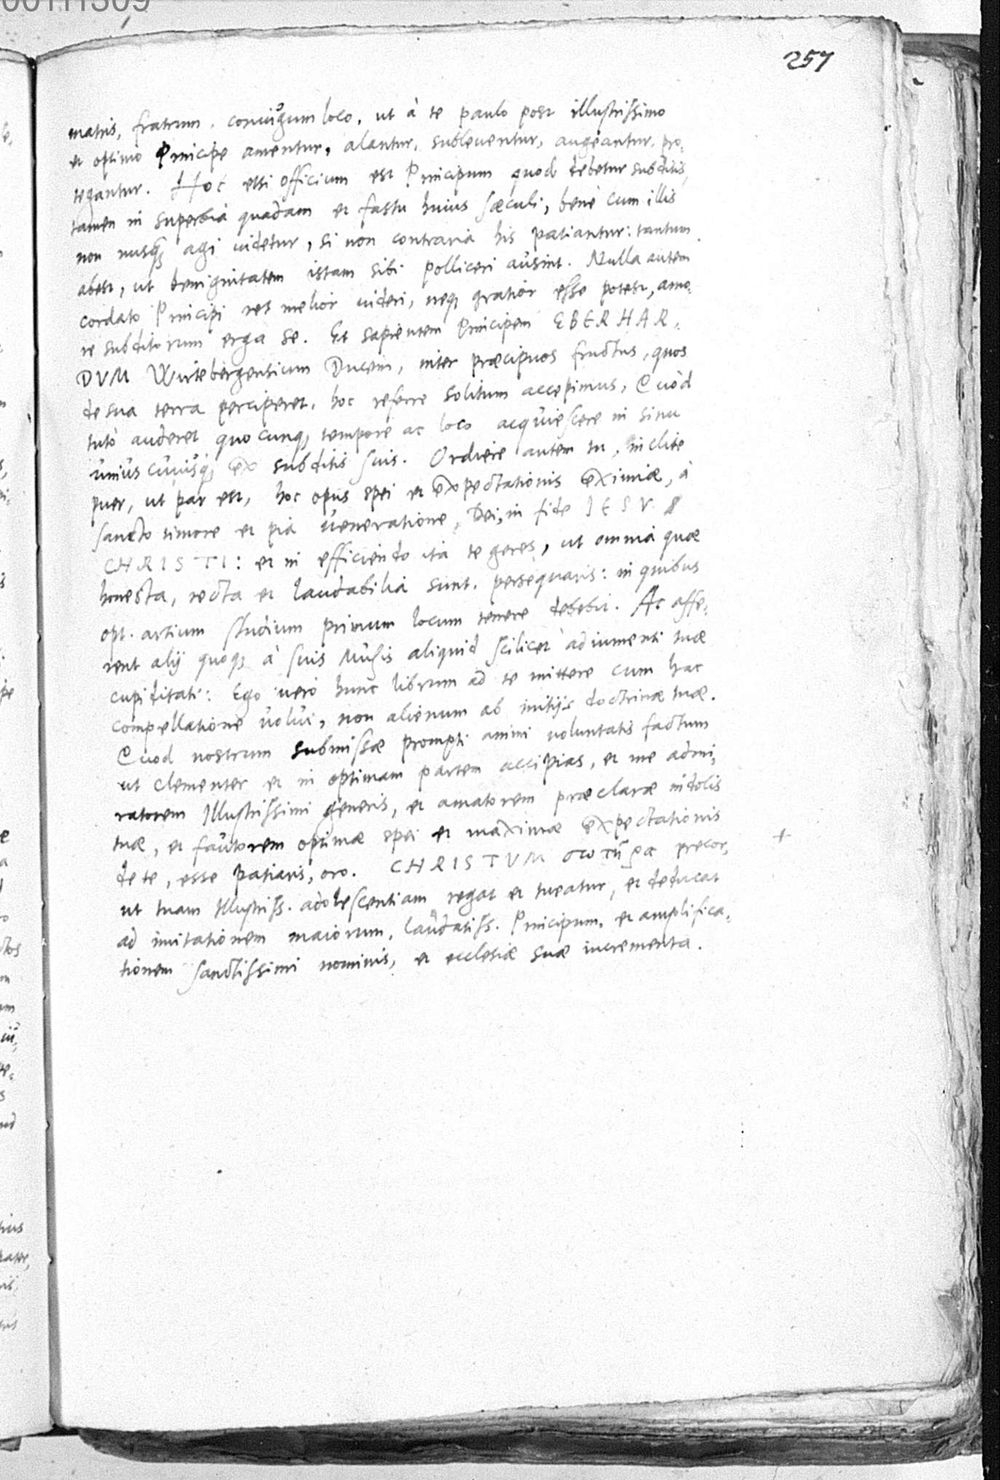 00111309
257
matris, fratrum, coniugum loco, ut à te paulo post illustrissimo
et optimo Principe amentur, alantur, subleuentur, augeantur, pro,
tegantur. Hoc etsi officium est Principum quod debetur subditis,
tamen in superbia quadam et fastu huius sæculi, bene cum illis
non nusq; agi uidetur, si non contraria his patiantur: tantum
abest, ut benignitatem istam sibi polliceri ausint. Nulla autem
cordato Principi res melior uideri, neq; gratior esse potest, amo,
re subditorum erga se. Et sapientem Principem EBERHAR,
DVM Wirtebergensium Ducem, inter præcipuos fructus, quos
de sua terra perciperet, hoc referre solitum accepimus, Quòd
tutò auderet quocunq; tempore ac loco acquiescere in sinu
unius cuiusq; ex subditis suis. Ordiere autem tu, inclite
puer, ut par est, hoc opus spei et expectationis eximiæ, à
sancto timore et pia ueneratione, Dei, in fide IESV
CHRISTI: et in efficiendo ita te geres, ut omnia quæ
honesta, recta et laudabilia sunt, persequaris: in quibus
opt. artium studium primum locum tenere debebit. Ac affe,
rent alij quoq; à suis Musis aliquid scilicet adiumenti tuæ
cupiditati: Ego uerò hunc librum ad te mittere cum hac
compellatione uolui, non alienum ab initijs doctrinæ tuæ.
Quod nostrum submissæ prompti animi uoluntatis factum
ut clementer et in optimam partem accipias, et me admi,
ratorem Illustrissimi generis, et amatorem præclaræ indolis
tuæ, et fautorem optimæ spei et maximæ expectationis
de te, esse patiaris, oro. CHRISTVM σωτῆρα precor,
ut tuam Illustriss. adolescentiam regat et tueatur, et deducat
ad imitationem maiorum, laudatiss. Principum, et amplifica,
tionem sanctissimi nominis, et ecclesiæ suæ incrementa.